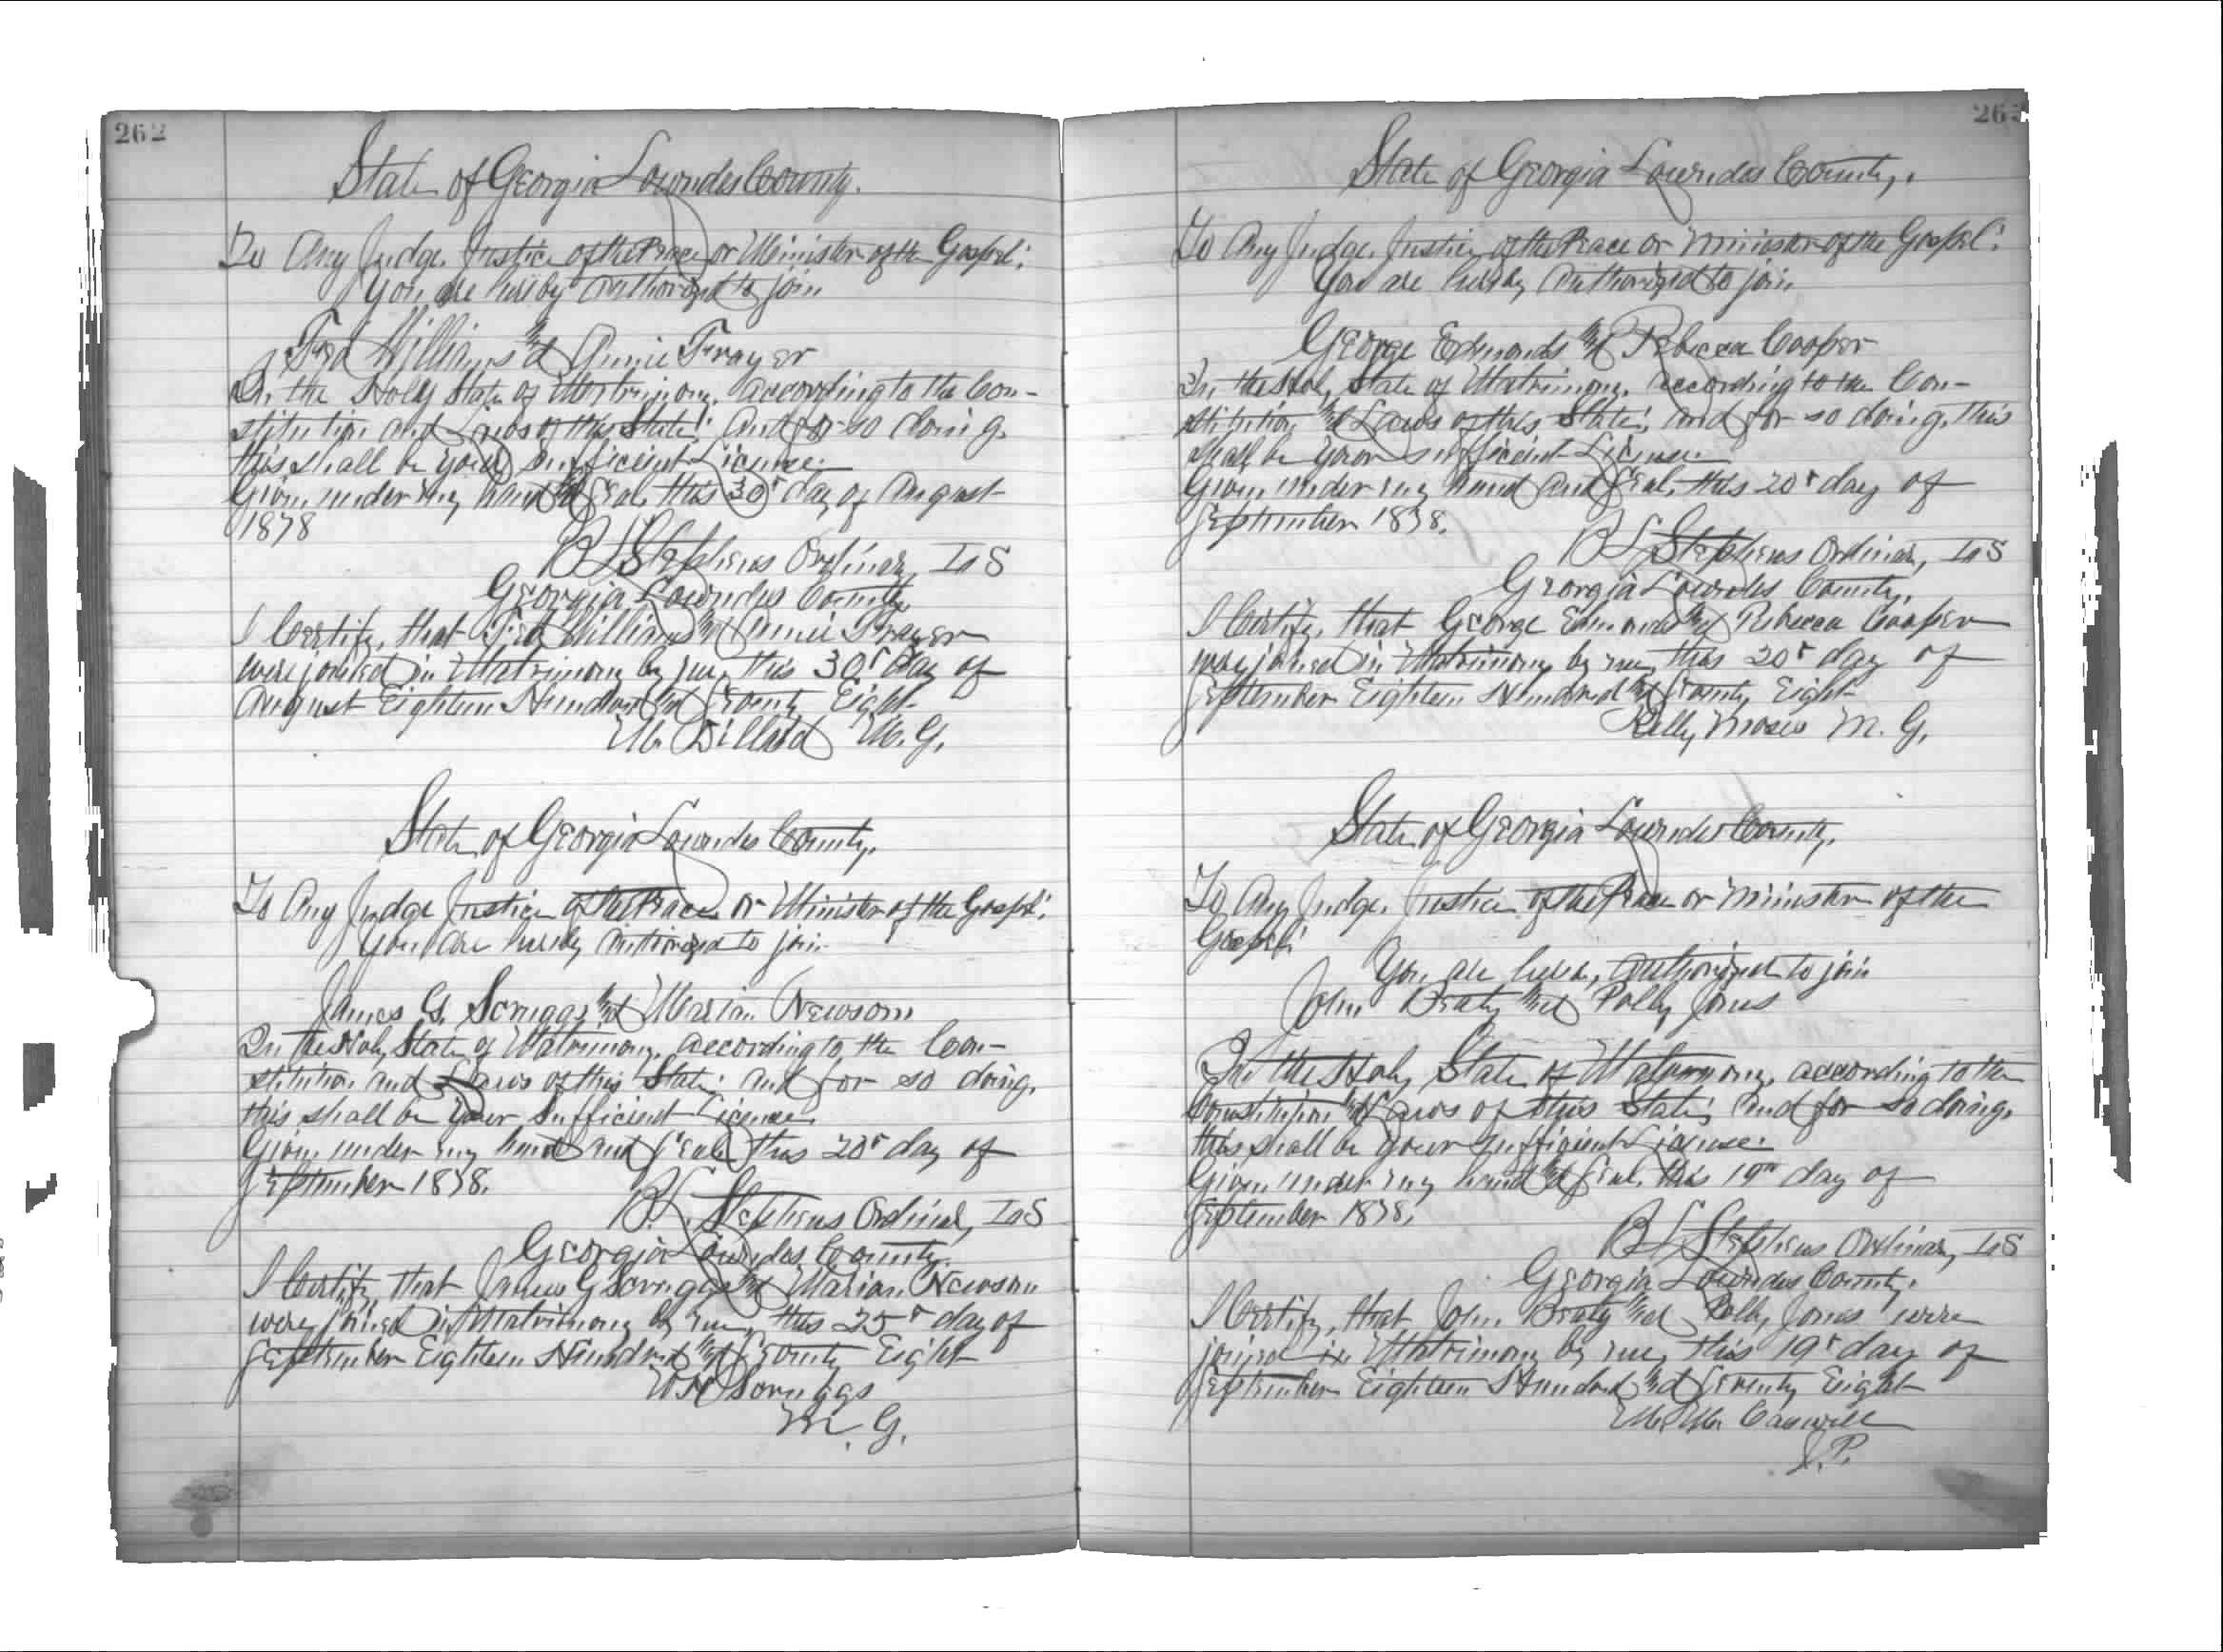 262
State of Georgia Lowndes County.
To Any Judge, Justice of the Peace or Minister of the Gospel:
You are hereby authorized to join
Fred Williams and Annie Frayer
In the Holy State of Matrimony, according to the Con-
stitution and Laws of this State: and for so doing,
this shall be your sufficient License.
Given under my hand and Seal, this 30th day of August
1878
B L Stephens Ordinary L S
Georgia Lowndes County
I Certify, that Fred Williams and Annie Frayer
were joined in Matrimony by me, this 30th Day of
August Eighteen Hundred and Seventy Eight
M. Dillard M. G.
State of Georgia Lowndes County.
To Any Judge Justice of the Peace or Minister of the Gospel:
You are hereby authorized to join
James G. Scruggs and Marian Newsom
In the Holy State of Matrimony, according to the Con-
stitution and Laws of this State: and for so doing,
this shall be your sufficient License.
Given under my hand and Seal this 20th day of
September 1878.
B. L. Stephens Ordinary, L S
Georgia Lowndes County.
I Certify, that James G Scruggs and Marian Newsom
were joined in Matrimony by me, this 25th day of
September Eighteen Hundred and Seventy Eight
W H Scruggs
M. G.
State of Georgia Lowndes County.
To Any Judge, Justice of the Peace or Minister of the Gospel:
You are hereby authorized to join
George Edmonds and Rebecca Cooper
In the Holy State of Matrimony, according to the Con-
stitution and Laws of this State; and for so doing, this
shall be your sufficient License.
Given under my hand and Seal, this 20th day of
September 1878.
B L Stephens Ordinary, L S
Georgia Lowndes County.
I Certify, that George Edmonds and Rebecca Cooper
were joined in Matrimony by me, this 20th day of
September Eighteen Hundred and Seventy Eight
Kelly Moses M. G.
State of Georgia Lowndes County.
To Any Judge, Justice of the Peace or Minister of the
Gospel:
You are hereby authorized to join
John Beaty and Polly Jones
In the Holy State of Matrimony, according to the
Constitution and Laws of this State; and for so doing,
this shall be your sufficient License.
Given under my hand and Seal, this 19th day of
September 1878.
B L Stephens Ordinary, L S
Georgia Lowndes County.
I Certify, that John Beaty and Polly Jones were
joined in Matrimony by me, this 19th day of
September Eighteen Hundred and Seventy Eight
M. M. Caswell
J. P.